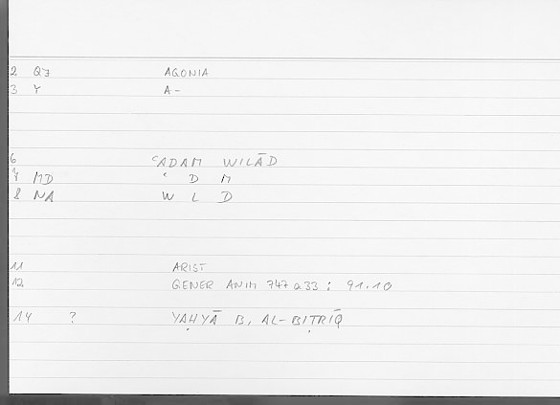 2 QJ AGONIA
3 Y A-
6 ʿADAM WILĀD
7 MD ʿ D M
8 NA W L D
11 ARIST
12 GENER ANIM 747a33 : 91.10
14 ? YAḤYĀ B. AL-BIṬRĪQ